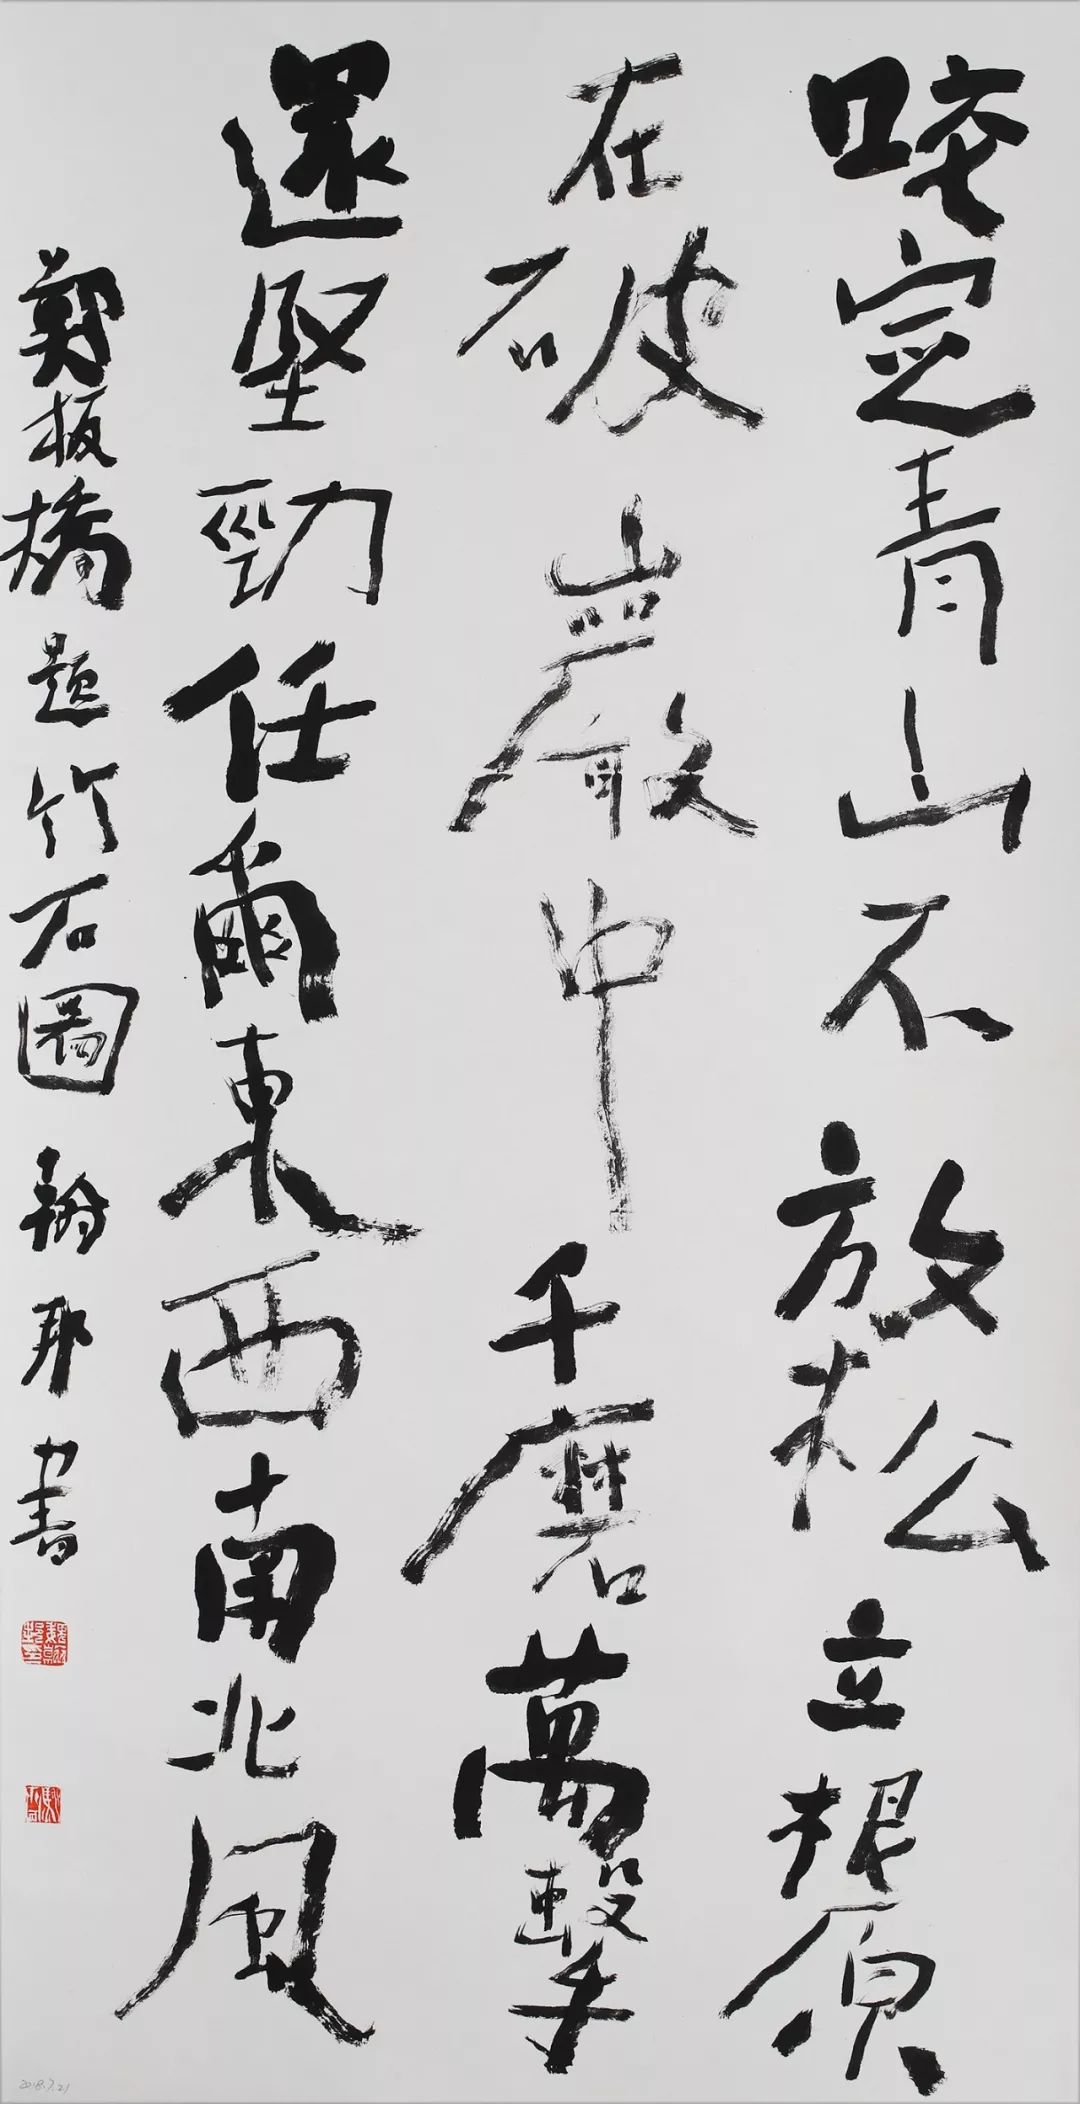 咬定青山不放松立根原
在破巖中千磨萬擊
還堅勁任爾東西南北風
鄭板橋題竹石圖 翰邦書
魏翰邦印
2018.7.21